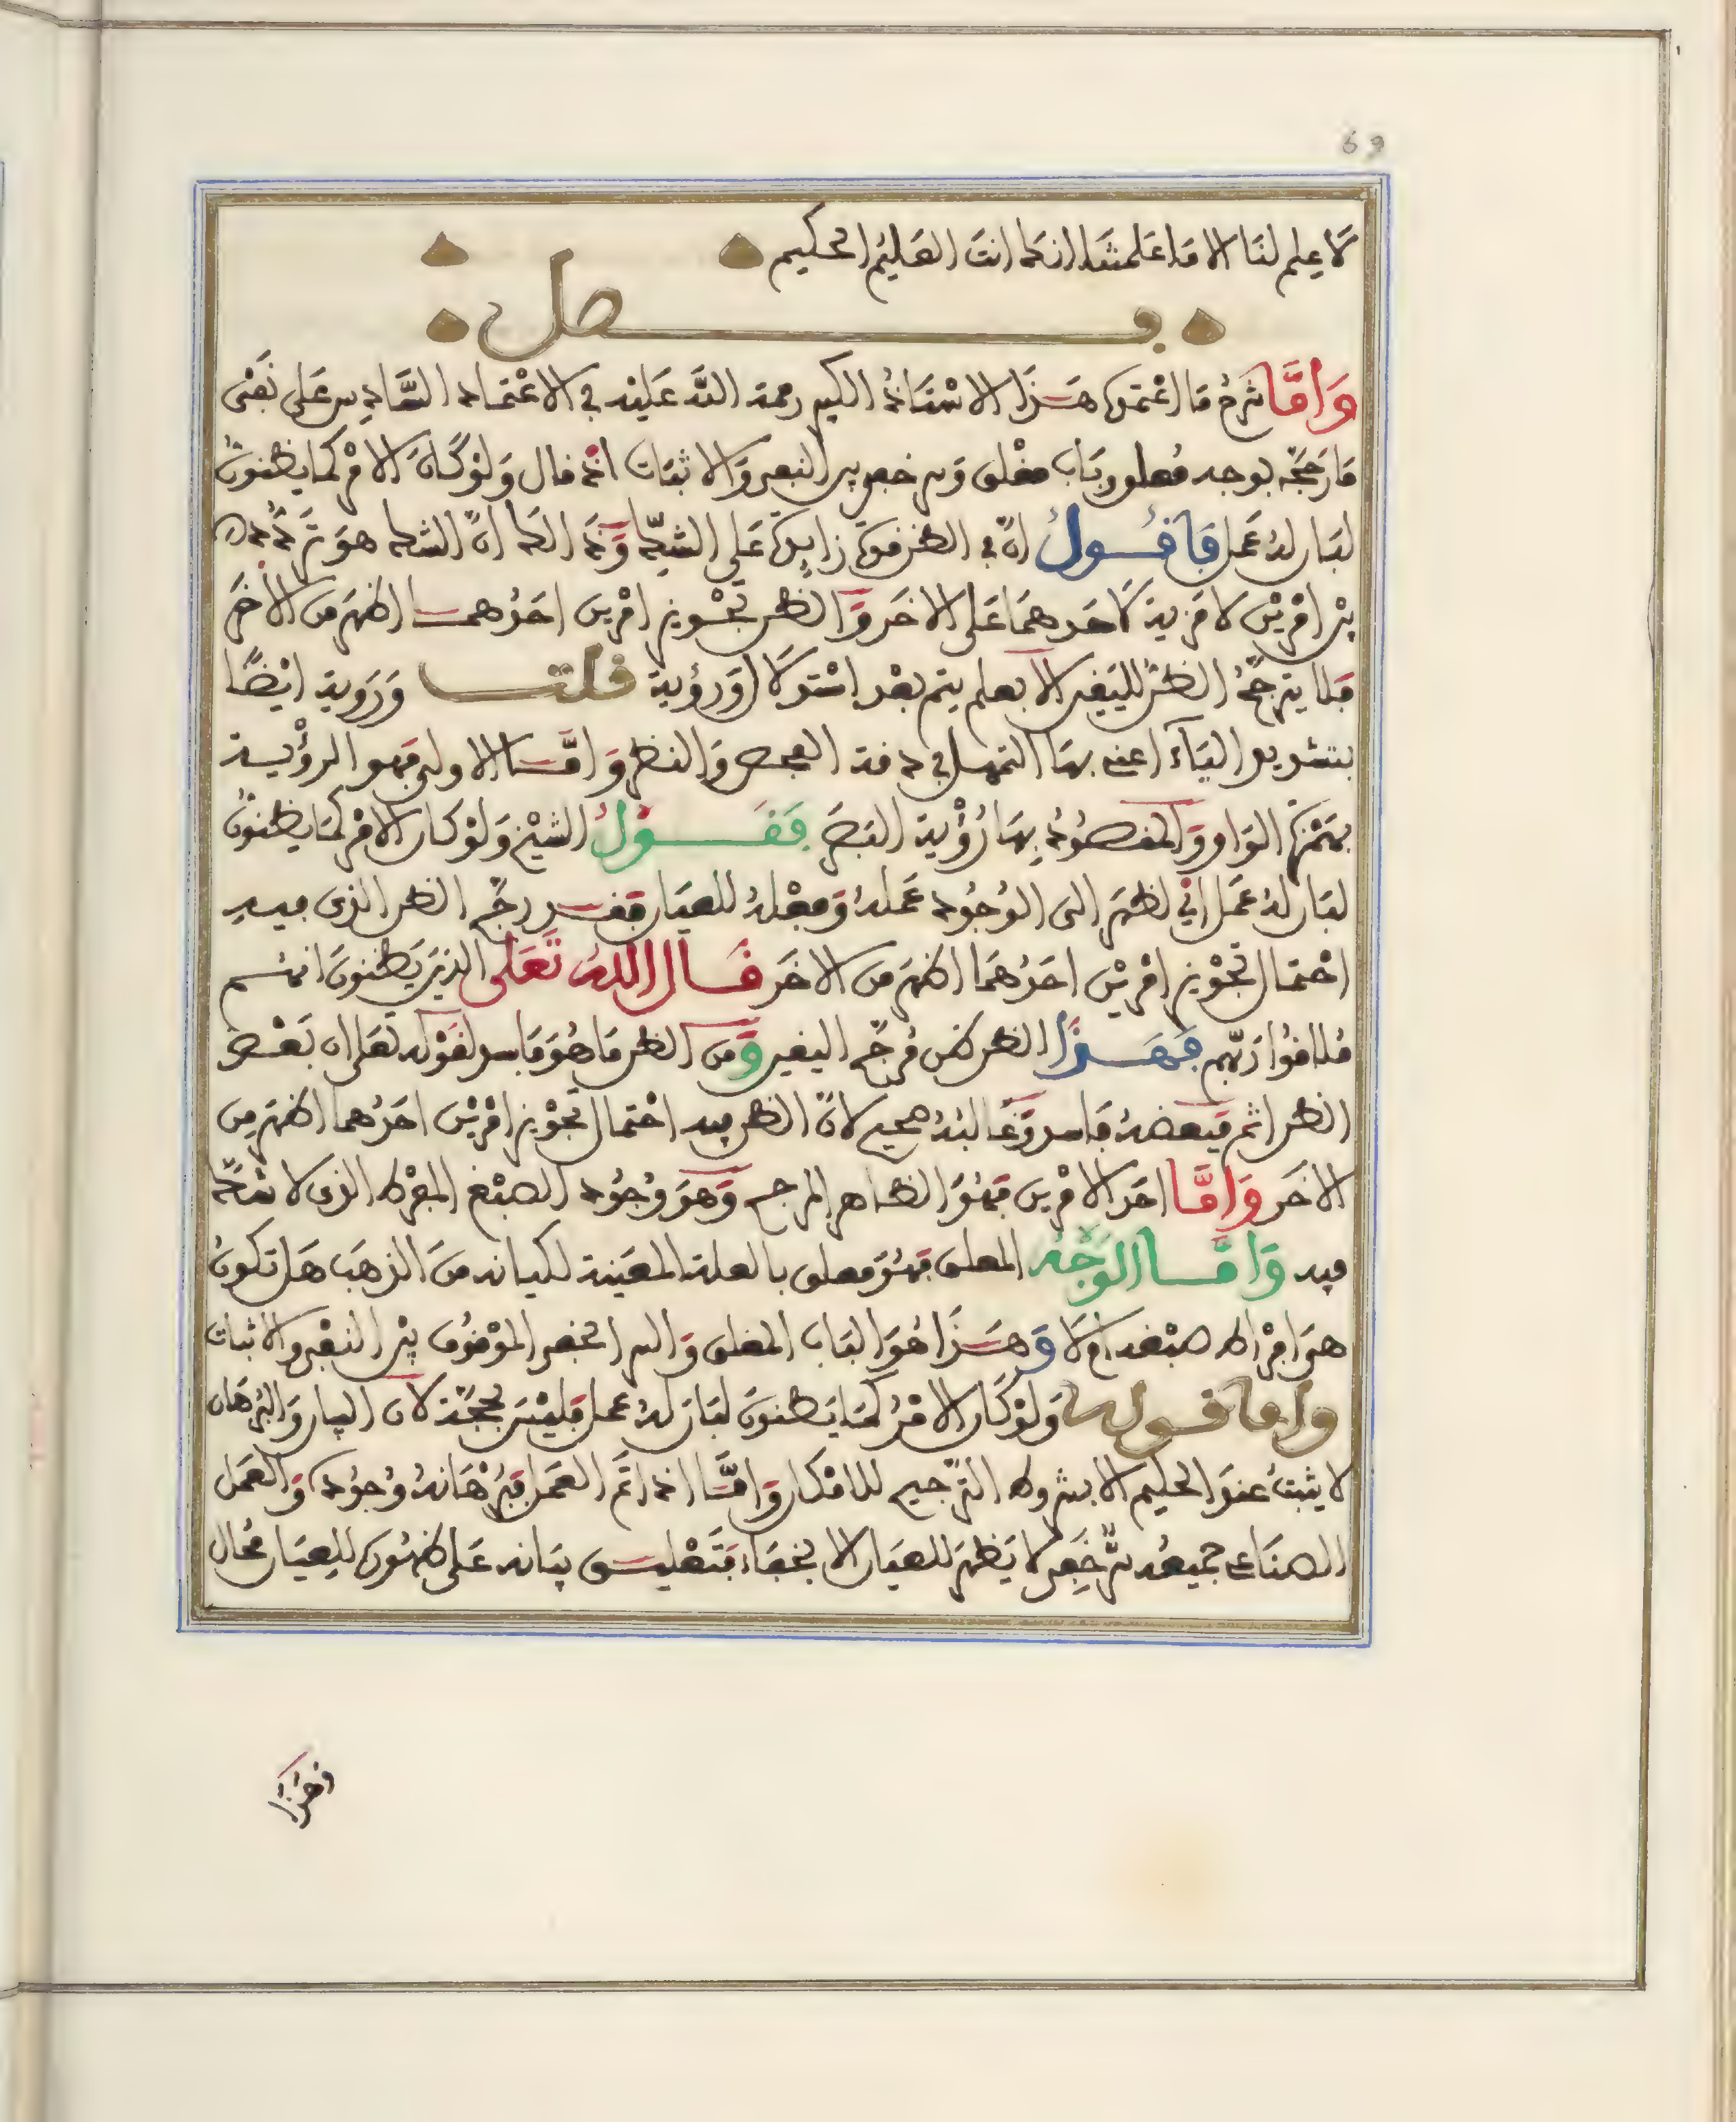 69
لَا عِلم لنَا الا مَا عَلمتنَا انكَ انتَ العَليمُ الحكيم
فصل
وَامَّا شرحُ مَا اعْتمدَ هَذَا الاسْتَاذُ الكبير رحمة اللَّه عَليْه في الاعْتمَاد السَّادِس عَلى نَفْى
مَا رَجحَّه بوجه مُعلق وبَاب مغْلق وَسر خفي بين النفى وَالاثبَات انه قال وَلوْ كَانَ الامْر كمَا يظنونَ
لبَان لهُ عَمل فَاقُولُ انَّ في الظن قوةً زايدةً عَلى الشكّ وَذَ الكَ انَّ الشك هوَ تَردُّد
بيْن امْريْن لا مَزية لَاحَدهمَا عَلى الاخَر وَالظن تجْويز امْرين احَدُهمَا اظهَر مِن الاخَر
فلا يترجَّحُ الظنُّ لليَقين الا بعلم يتم بعْد اسْتدلَال اوَرؤية قلت وَرَوية ايْضًا
بتشديد اليَآء اعني بهَا التمهل في دقة الفحص وَالنظر وَامَّا الاولى فهو الرؤْية
بهَمْزة الوَاو وَالمقصُودُ بِهَا رُؤْية البَصَر فَقَوْلُ الشيْخ وَلوْ كان الامْر كمَا يظنونَ
لبَان لهُ عَمل اي لظهَر الى الوُجُود عَملهُ وَفعْلهُ للعيَان فقد رجَّح الظن الذى فيه
احْتمَال تجْويز امْريْن احَدُهمَا اظهَر مِن الاخَر قَال اللهُ تَعَلى الذينَ يَظنونَ انهُم
مُلاقوُا رَبّهم فهَذَا الظن ظن مُرجَّح اليقين وَمن الظن مَا هُوَ فَاسد لقوْله تعَلى ان بَعْض
الظن اثم فبَعضهُ فَاسد وَغَالبُهُ صحيح لانَّ الظن فيه احْتمَال تجْويز امْريْن احَدُهما اظهَر مِن
الاخَر وَامَّا احَد الامْرين فَهُوَ الظاهر المرجح وَهوَ وُجُود الصبْغ المفرْط الذى لا شكَّ
فيه وَامَّا الوَجْهُ المعلق فهُوَ معلق بالعلة المعَينة لكيانه منَ الذهَب هَل تكونُ
هوَ افْراط صبْغه ام لا وَهَذَا هُوَ البَاب المغلق وَالسر الخفى الموْقوُف بيْن النفْى والاثبات
وامَا قولهُ وَلوْ كَان الامْرُ كمَا يَظنونَ لبَان لهُ عمل فليْسَ بحجَّة لان البيان وَالبُرهَان
لا يثبتُ عندَ الحكيم الا بشروط التّرجيح للامْكان وَامَّا اذ اتَم العَمل فبُرْهَانهُ وُجوُدهُ وَالعَمل
الصنَاعى جَميعُه سرُّ خَفِى لا يَظهَر للعيَان الا بخفَاء فتَعْليق بيَانه عَلى ظهُورهُ للِعيَان مُحَال
وَهَذَا